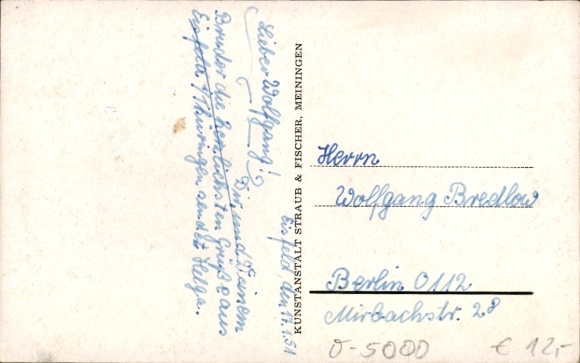 Eisfeld, den 17.1.51
Lieber Wolfgang!
Dir und Deinem
Bruder die herzlichsten Grüße aus
Eisfeld / Thüringen sendet Helga.
KUNSTANSTALT STRAUB & FISCHER, MEININGEN
Herrn
Wolfgang Bredlow
Berlin O112
Mirbachstr. 28
O-5000
€ 12,-